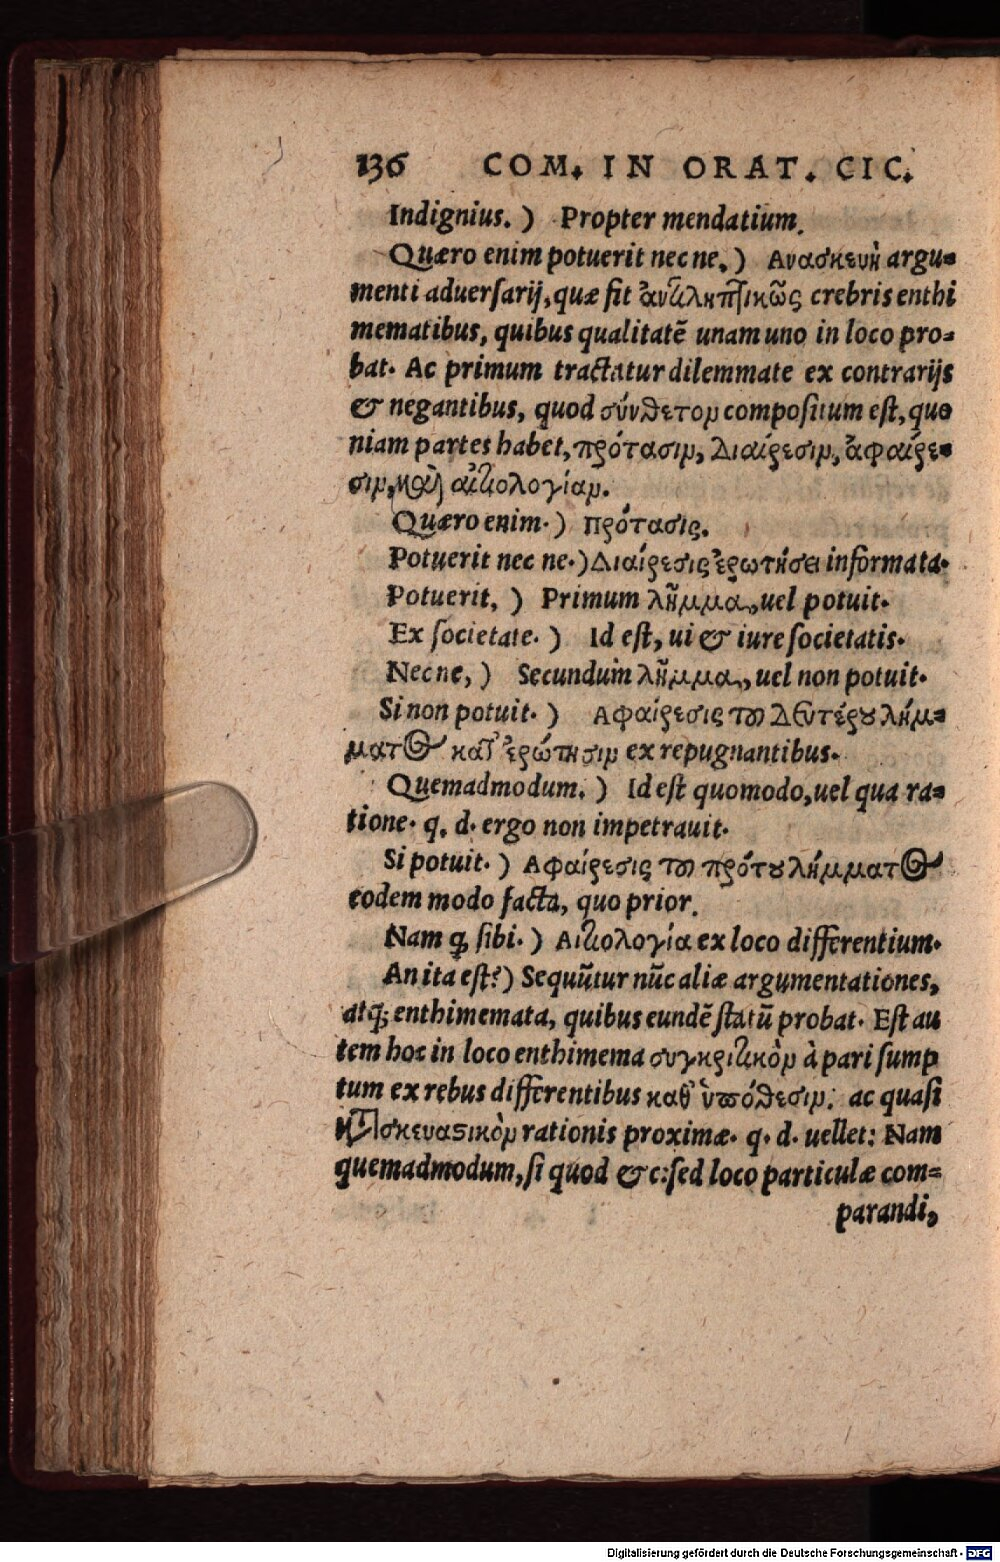 136 COM. IN ORAT. CIC.
Indignius. ) Propter mendatium.
Quæro enim potuerit nec ne. ) Ανασκευὴ argu=
menti aduersarij, quæ fit crebris enthi
mematibus, quibus qualitatē unam uno in loco pro=
bat. Ac primum tractatur dilemmate ex contrarijs
& negantibus, quod σύνθετον compositum est, quo
niam partes habet, πρότασιν, διαίρεσιν, ἀφαίρε=
σιν, καὶ αἰτιολογίαν.
Quæro enim. ) πρότασις.
Potuerit nec ne. ) Διαίρεσις ἐρωτήσει informata.
Potuerit, ) Primum λῆμμα, uel potuit.
Ex societate. ) Id est, ui & iure societatis.
Necne, ) Secundum λῆμμα, uel non potuit.
Si non potuit. ) Αφαίρεσις τοῦ δευτέρου λήμ=
ματος κατ' ἐρώτησιν ex repugnantibus.
Quemadmodum. ) Id est quomodo, uel qua ra=
tione. q. d. ergo non impetrauit.
Si potuit. ) Αφαίρεσις τοῦ πρότου λήμματος
eodem modo facta, quo prior.
Nam ꝙ sibi. ) Αιτιολογία ex loco differentium.
An ita est? ) Sequūtur nūc aliæ argumentationes,
atq; enthimemata, quibus eundē statū probat. Est au
tem hoc in loco enthimema συγκριτικὸν à pari sump
tum ex rebus differentibus καθ' ὑπόθεσιν. ac quasi
κατασκευαστικὸν rationis proximæ. q. d. uellet: Nam
quemadmodum, si quod & c: sed loco particulæ com=
parandi,
Digitalisierung gefördert durch die Deutsche Forschungsgemeinschaft - DFG